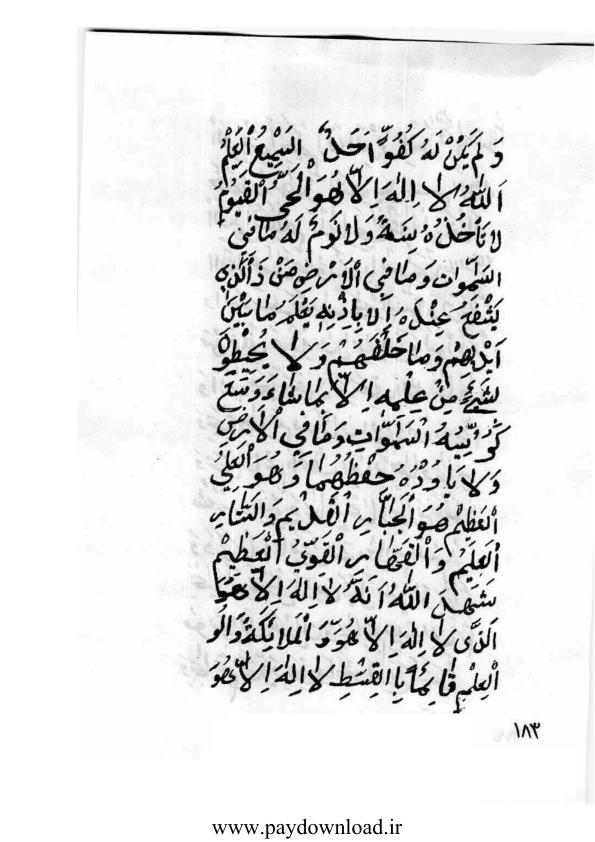 وَلَمْ يَكُنْ لَهُ كُفُوًّا اَحَدٌ السَّمِيعُ الْعَلِيمُ
اَللّٰهُ لَا اِلٰهَ اِلَّا هُوَ الْحَيُّ الْقَيُّومُ
لَا تَأْخُذُهُ سِنَةٌ وَلَا نَوْمٌ لَهُ مَا فِي
السَّمٰوَاتِ وَمَا فِي الْاَرْضِ مَنْ ذَا الَّذِي
يَشْفَعُ عِنْدَهُ اِلَّا بِاِذْنِهِ يَعْلَمُ مَا بَيْنَ
اَيْدِيهِمْ وَمَا خَلْفَهُمْ وَلَا يُحِيطُونَ
بِشَيْءٍ مِنْ عِلْمِهِ اِلَّا بِمَا شَاءَ وَسِعَ
كُرْسِيُّهُ السَّمٰوَاتِ وَمَا فِي الْاَرْضِ
وَلَا يَاوُدُهُ حِفْظُهُمَا وَهُوَ الْعَلِيُّ
الْعَظِيمُ هُوَ الْجَبَّارِ الْقَدِيمِ وَالسَّتَّارِ
الْعَلِيمُ وَالْقَهَّارِ الْقَوِيُّ الْعَظِيمُ
شَهِدَ اللّٰهُ اَنَّهُ لَا اِلٰهَ اِلَّا هُوَ
الَّذِي لَا اِلٰهَ اِلَّا هُوَ وَ الْمَلَائِكَةُ وَالُو
الْعِلْمِ قَائِمًا بِالْقِسْطِ لَا اِلٰهَ اِلَّا هُوَ
١٨٣
www.paydownload.ir